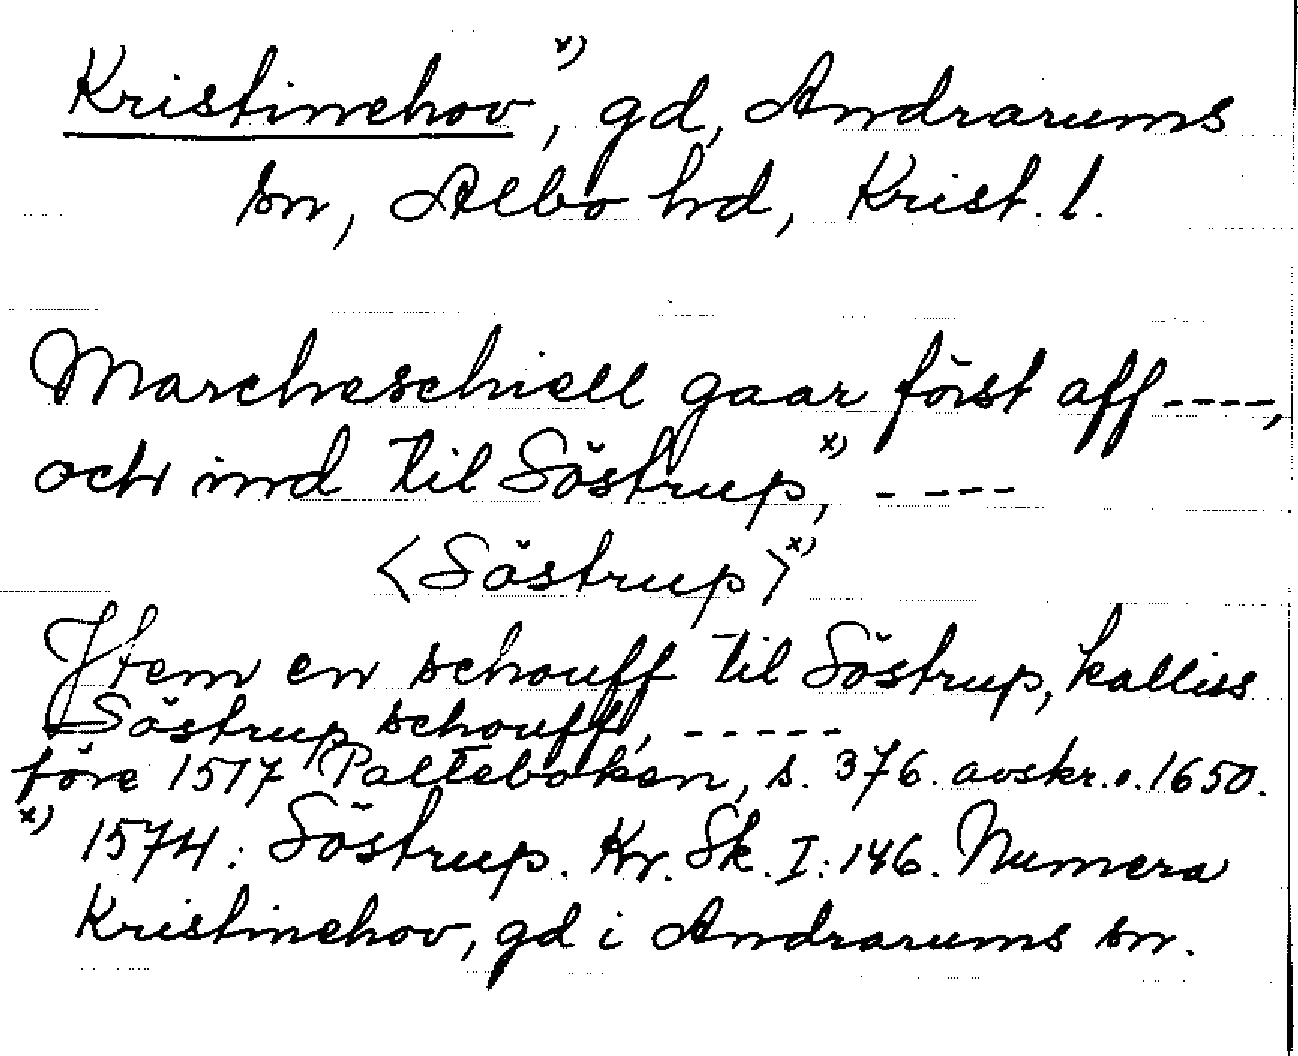 Kristinehov x), gd, Andrarums
sn, Albo hd, Krist. l.
Marcheschiell gaar först aff ----,
och ind til Söstrup, x) ----
<Söstrup> x)
Item en schouff til Söstrup, kalliss
Söstrup schouff, -----
före 1517 Palteboken, s. 376. avskr. o. 1650.
x) 1574: Söstrup. Kr. Sk. I: 146. Numera
Kristinehov, gd i Andrarums sn.